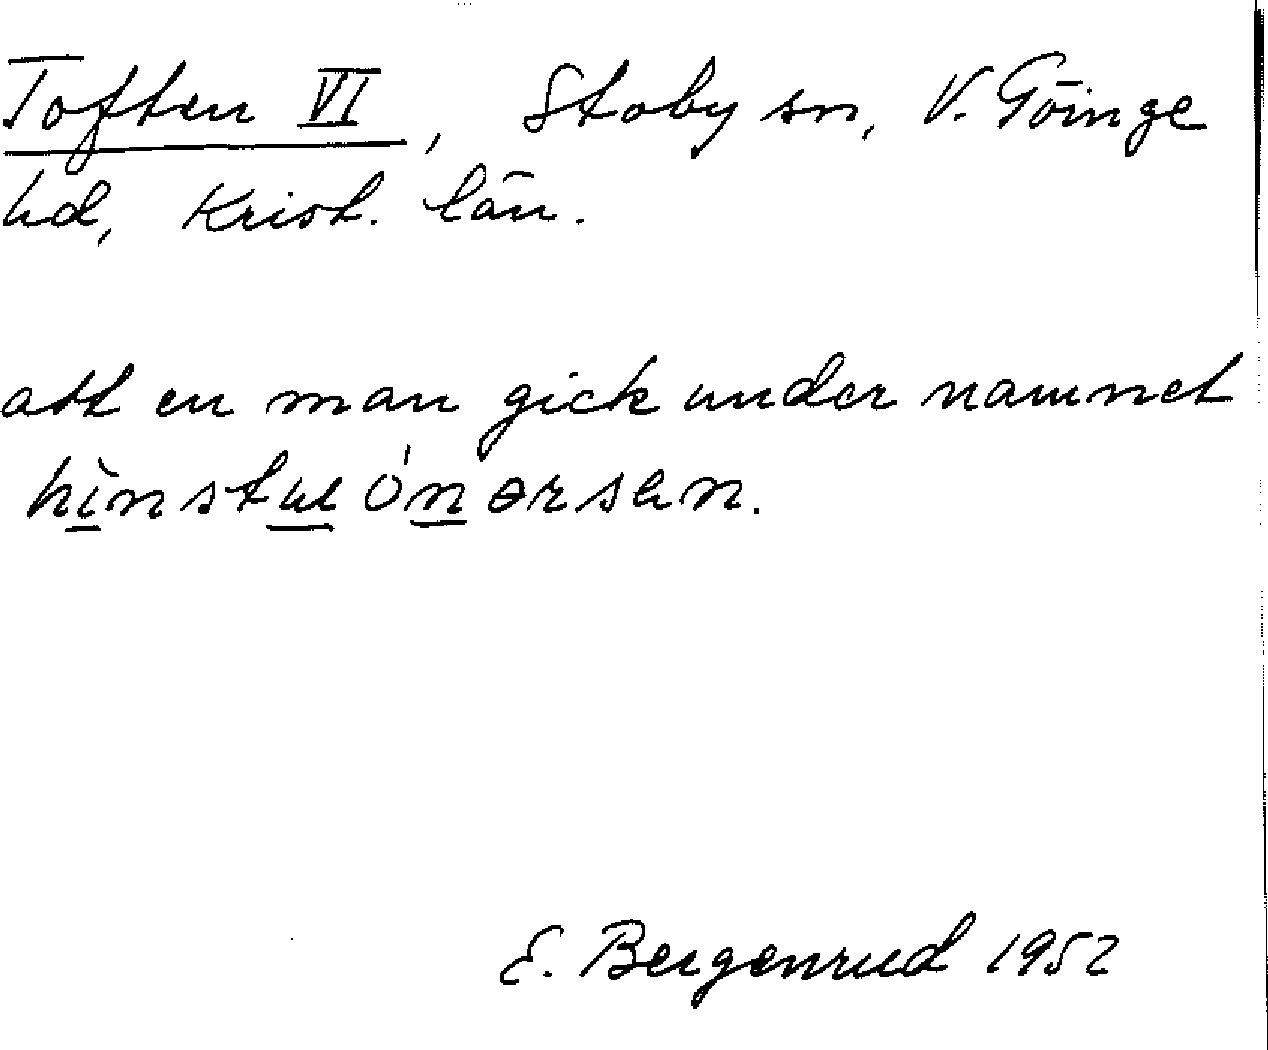 Toften VI, Stoby sn, V. Göinge
hd, Krist. län.
att en man gick under namnet
E. Bergenrud 1952